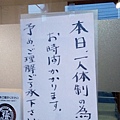 本日、一人体制の為
お時間かかります。
予め、ご理解ご了承下さい。